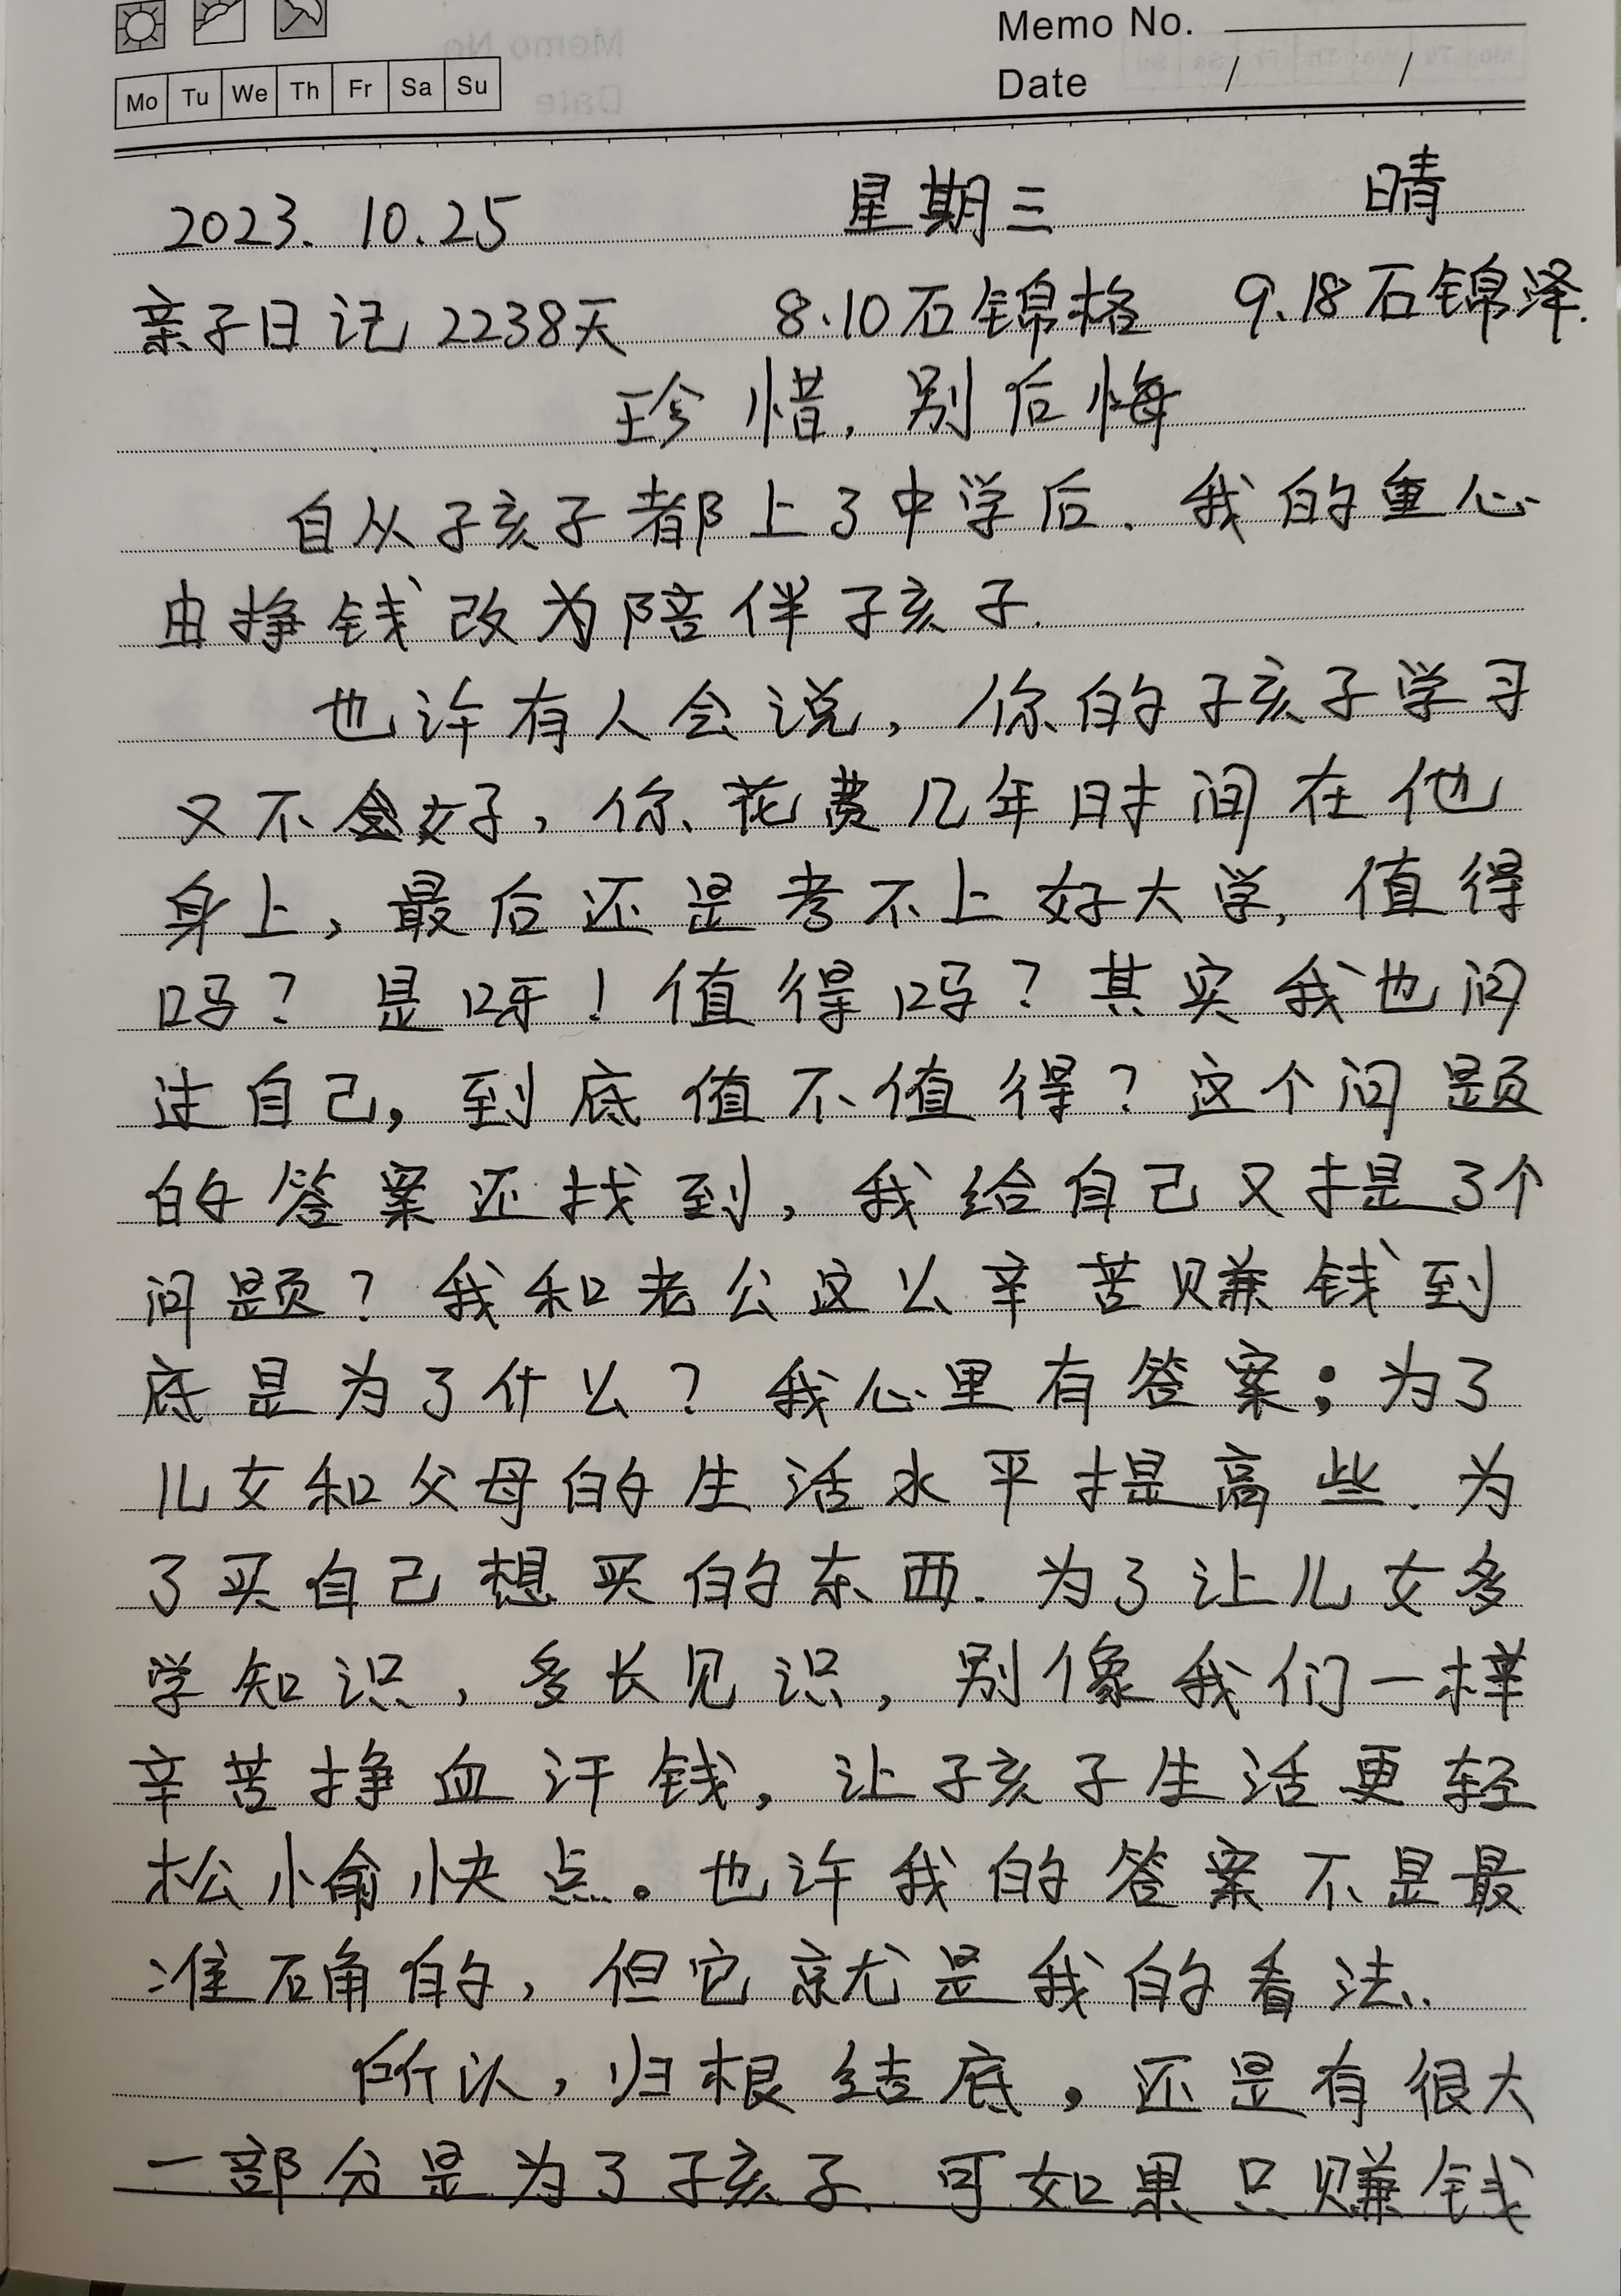 Memo No.
Mo Tu We Th Fr Sa Su
Date / /
2023. 10.25 星期三 晴
亲子日记2238天 8.10石锦格 9.18石锦泽.
珍惜,别后悔
自从孩子都上了中学后、我的重心
由挣钱改为陪伴孩子.
也许有人会说,你的孩子学习
又不好,你花费几年时间在他
身上,最后还是考不上好大学,值得
吗?是呀!值得吗?其实我也问
过自己,到底值不值得?这个问题
的答案还找到,我给自己又提了个
问题?我和老公这么辛苦赚钱到
底是为了什么?我心里有答案;为了
儿女和父母的生活水平提高些.为
了买自己想买的东西.为了让儿女多
学知识,多长见识,别像我们一样
辛苦挣血汗钱,让孩子生活更轻
松愉快点。也许我的答案不是最
准确的,但它就是我的看法.
所以,归根结底,还是有很大
一部分是为了孩子.可如果只赚钱